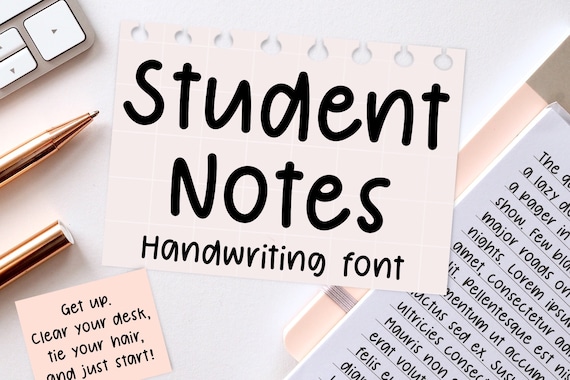 Student
Notes
Handwriting font
Get up.
Clear your desk,
tie your hair,
and just start!
The
a lazy
a pager in
show. Few
major roads on
nights. Lorem ipsum
amet, consectetur
elit. Pellentesque est
ut accum
ultricies consec
Mauris non
erat volut
felis